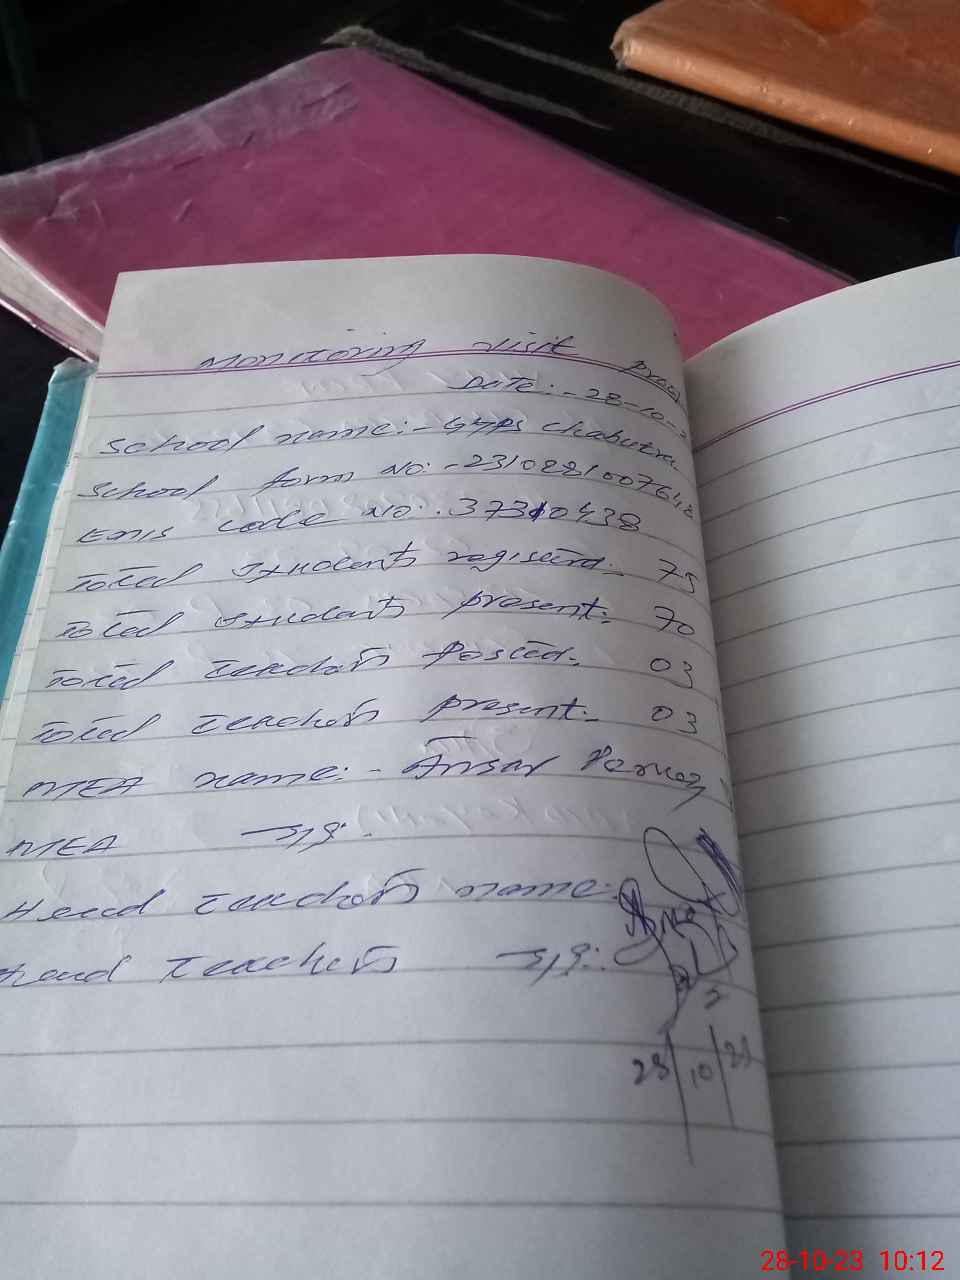 Monitoring visit proof
Date:- 28-10-2
School name:- GPS Chabutra
School form No:- 23102810076
Emis code No:. 37310438
Total Students registerd:- 75
Total Students present:- 70
Total Teachers Posted:- 03
Total Teachers present:- 03
MEA name:- Ansar Parvez
MEA Sig:.
Head Teachers name:
Head Teachers Sig:.
28/10/23
28-10-23 10:12